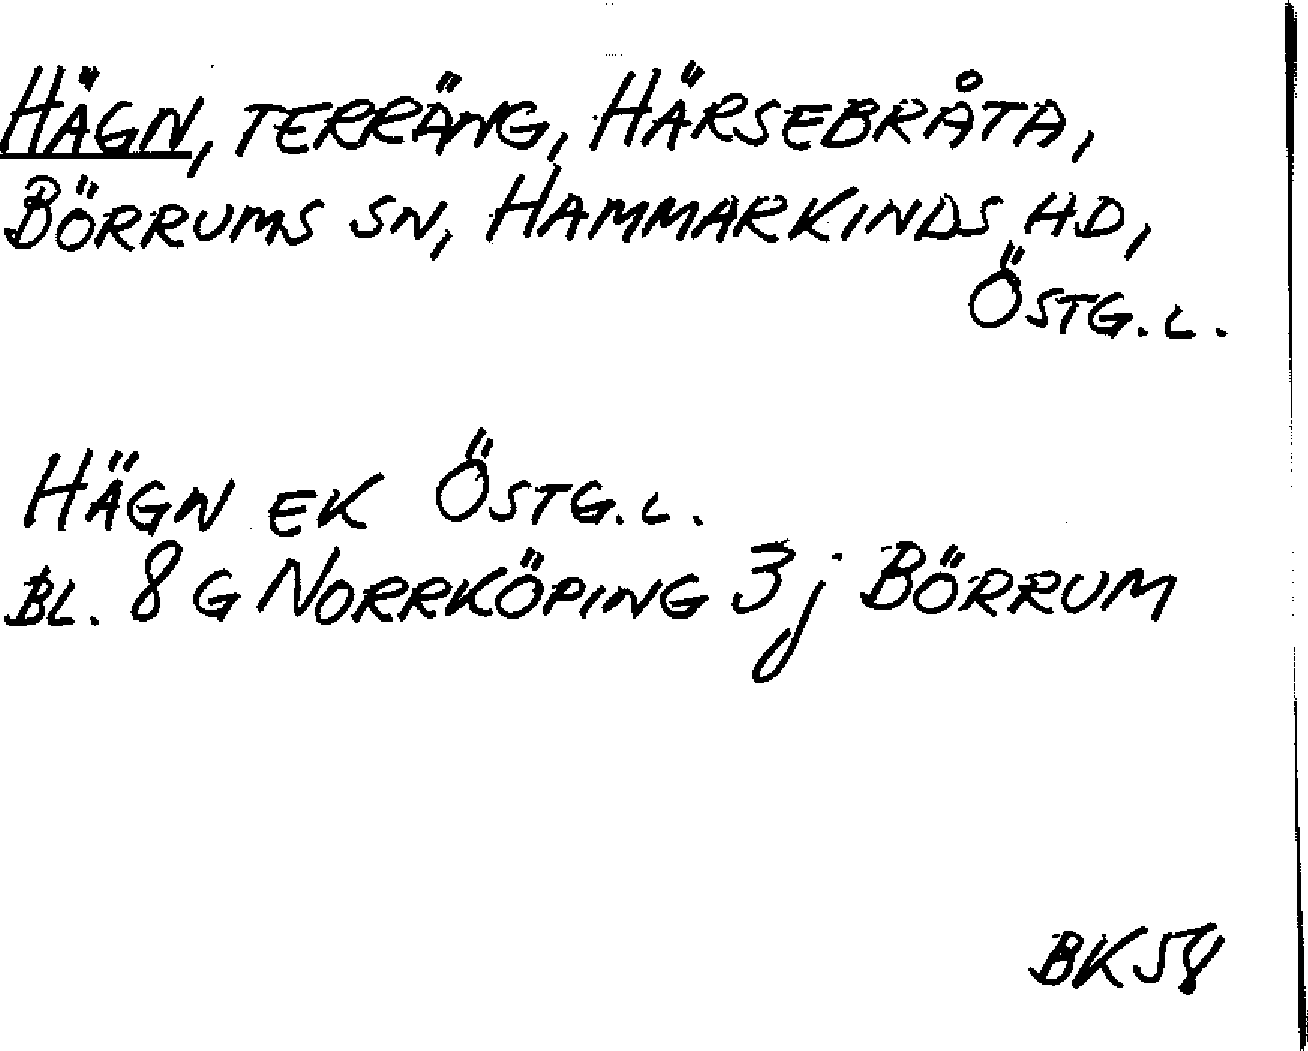 HÄGN, TERRÄNG, HÄRSEBRÅTA,
BÖRRUMS SN, HAMMARKINDS HD,
ÖSTG. L.
HÄGN EK ÖSTG. L.
BL. 8 G NORRKÖPING 3j BÖRRUM
BK58